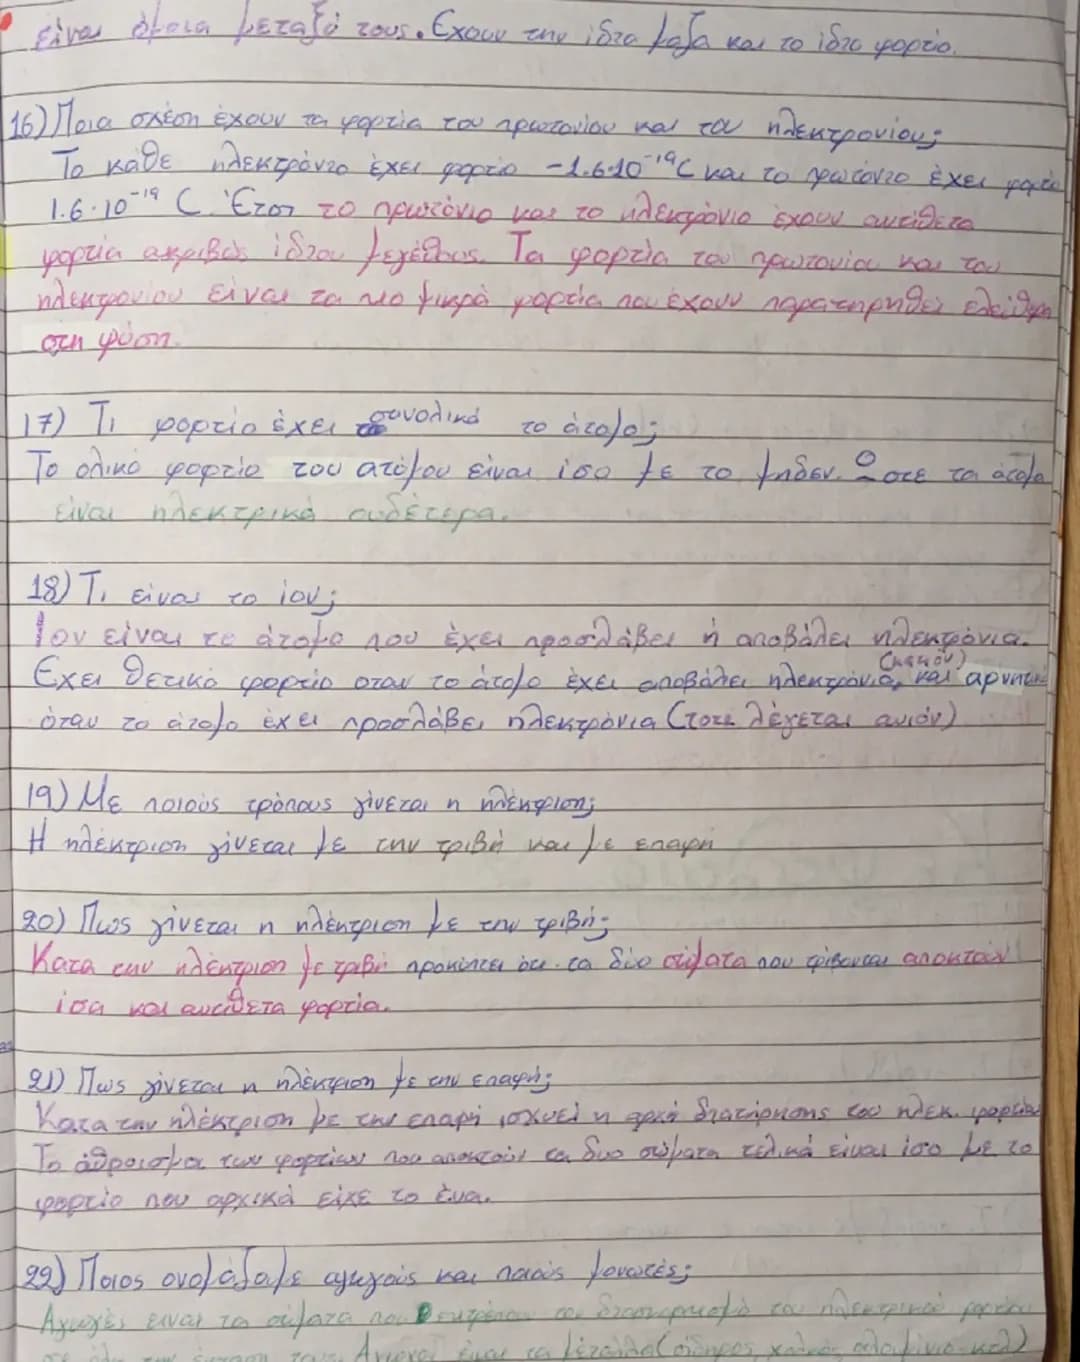 είναι όμοια μεταξύ τους. Έχουν την ίδια μάζα και το ίδιο φορτίο.
16) Ποια σχέση έχουν τα φορτία του πρωτονίου και του ηλεκτρονίου;
Το κάθε ηλεκτρόνιο έχει φορτίο -1.6·10⁻¹⁹C και το πρωτόνιο έχει φορτίο
1.6·10⁻¹⁹ C. Έτσι το πρωτόνιο και το ηλεκτρόνιο έχουν αντίθετα
φορτία ακριβώς ίδιου μεγέθους. Τα φορτία του πρωτονίου και του
ηλεκτρονίου είναι τα πιο μικρά φορτία που έχουν παρατηρηθεί ελεύθερα
στη φύση.
17) Τι φορτίο έχει συνολικά το άτομο;
Το ολικό φορτίο του ατόμου είναι ίσο με το μηδέν. Ώστε τα άτομα
είναι ηλεκτρικά ουδέτερα.
18) Τι είναι το ιόν;
Ιον είναι το άτομο που έχει προσλάβει ή αποβάλει ηλεκτρόνια.
Έχει θετικό φορτίο οταν το άτομο έχει αποβάλει ηλεκτρόνια, (κατιόν) και αρνητικό
όταν το άτομο έχει προσλάβει ηλεκτρόνια (τοτε λέγεται ανιόν)
19) Με ποιούς τρόπους γίνεται η ηλέκτριση;
Η ηλέκτριση γίνεται με την τριβή και με επαφή
20) Πως γίνεται η ηλέκτριση με την τριβή;
Κατα την ηλέκτριση με τριβή προκύπτει ότι τα δύο σώματα που τρίβονται αποκτούν
ίσα και αντίθετα φορτία.
21) Πως γίνεται η ηλέκτριση με την επαφή;
Κατα την ηλέκτριση με την επαφή ισχυεί η αρχή διατήρησης του ηλεκ. φορτίου
Το άθροισμα των φορτίων που αποκτούν τα δυο σώματα τελικά είναι ίσο με το
φορτίο που αρχικά είχε το ένα.
22) Ποιος ονομάζαμε αγωγούς και ποιούς μονωτές;
Αγωγές ειναι τα σώματα που επιτρέπουν τον διασκορπισμό του ηλεκτρικού φορτίου
σε όλη την έκταση τους. Αγωγοί είναι τα μέταλλα (σίδηρος, χαλκός, αλουμίνιο κτλ)